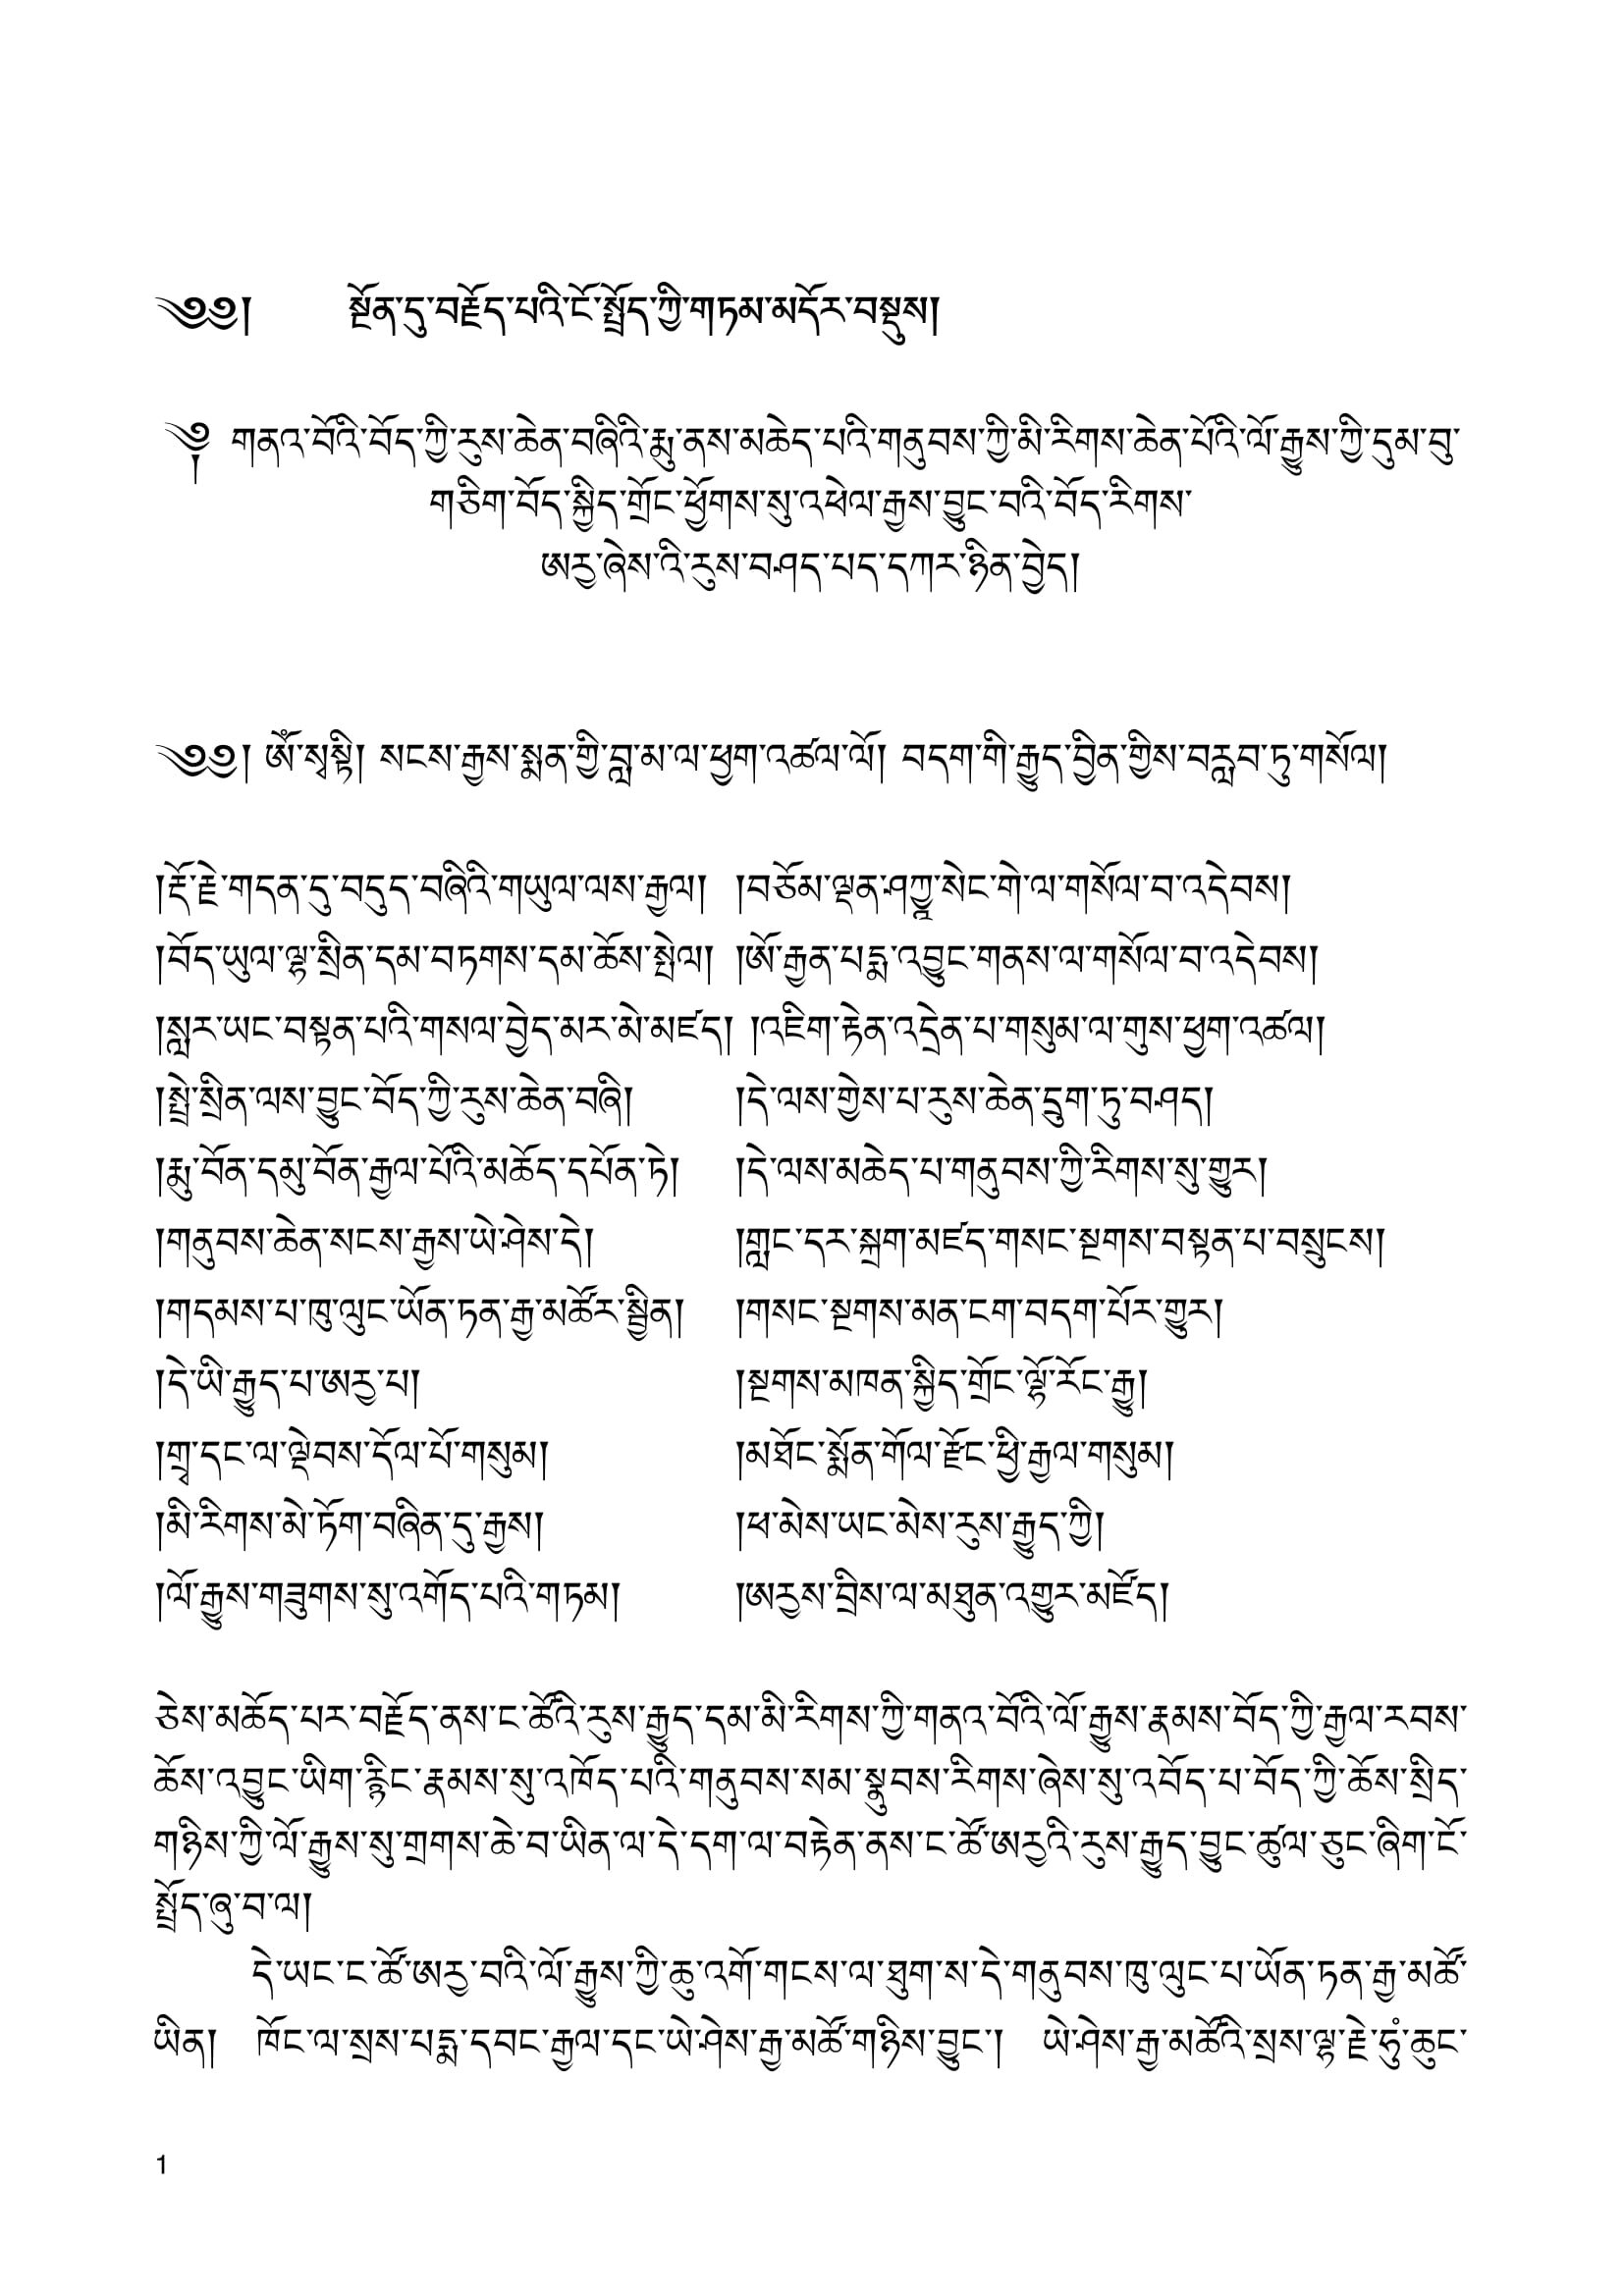 ༄༅།      སྔོན་དུ་བརྗོད་པའི་ངོ་སྤྲོད་ཀྱི་གཏམ་མདོར་བསྡུས།
༈ གནའ་བོའི་བོད་ཀྱི་རུས་ཆེན་བཞིའི་རྨུ་ནས་མཆེད་པའི་གནུབས་ཀྱི་མི་རིགས་ཆེན་པོའི་ལོ་རྒྱུས་ཀྱི་དུམ་བུ་
གཅིག་བོད་སྐྱིད་གྲོང་ཕྱོགས་སུ་འཕེལ་རྒྱས་བྱུང་བའི་བོད་རིགས་
ཨརྱ་ཞེས་འི་རུས་བཤད་པད་དཀར་ཉིན་བྱེད།
༄༅། ཨོཾ་སྭསྟི། སངས་རྒྱས་སྨན་གྱི་བླ་མ་ལ་ཕྱག་འཚལ་ལོ། བདག་གི་རྒྱུད་བྱིན་གྱིས་བརླབ་ཏུ་གསོལ།
།རྡོ་རྗེ་གདན་དུ་བདུད་བཞིའི་གཡུལ་ལས་རྒྱལ། །བཅོམ་ལྡན་ཤཀྱཱ་སེང་གེ་ལ་གསོལ་བ་འདེབས།
།བོད་ཡུལ་ལྷ་སྲིན་དམ་བཏགས་དམ་ཆོས་སྤེལ། །ཨོ་རྒྱན་པདྨ་འབྱུང་གནས་ལ་གསོལ་བ་འདེབས།
།སླར་ཡང་བསྟན་པའི་གསལ་བྱེད་མར་མེ་མཛད། །འཇིག་རྟེན་འདྲེན་པ་གསུམ་ལ་གུས་ཕྱག་འཚལ།
།སྤྲེ་སྲིན་ལས་བྱུང་བོད་ཀྱི་རུས་ཆེན་བཞི། །དེ་ལས་གྱེས་པ་རུས་ཆེན་དྲུག་ཏུ་བཤད།
།རྨུ་བོན་དམུ་བོན་རྒྱལ་པོའི་མཆོད་དཔོན་ཏེ། །དེ་ལས་མཆེད་པ་གནུབས་ཀྱི་རིགས་སུ་གྱུར།
།གནུབས་ཆེན་སངས་རྒྱས་ཡེ་ཤེས་དེ། །གླང་དར་སྐྲག་མཛད་གསང་སྔགས་བསྟན་པ་བསྲུངས།
།གདམས་པ་ཁུ་ལུང་ཡོན་ཏན་རྒྱ་མཚོར་སྦྱིན། །གསང་སྔགས་མན་ངག་བདག་པོར་གྱུར།
།དེ་ཡི་རྒྱུད་པ་ཨརྱ་པ། །སྔགས་མཁན་སྐྱིད་གྲོང་ལྷོ་རོང་རྒྱུ།
།གྲྭ་དང་ལ་ལྡེབས་དོལ་པོ་གསུམ། །མཐོང་སྨོན་གོལ་རྫོང་ཕྱི་རྒྱལ་གསུམ།
།མི་རིགས་མེ་ཏོག་བཞིན་དུ་རྒྱས། །ཕ་མེས་ཡང་མེས་རུས་རྒྱུད་ཀྱི།
།ལོ་རྒྱུས་གཟུགས་སུ་འགོད་པའི་གཏམ། །ཨརྱས་བྲིས་ལ་མཐུན་འགྱུར་མཛོད།
ཅེས་མཆོད་པར་བརྗོད་ནས་ང་ཚོའི་རུས་རྒྱུད་དམ་མི་རིགས་ཀྱི་གནའ་བོའི་ལོ་རྒྱུས་རྣམས་བོད་ཀྱི་རྒྱལ་རབས་
ཆོས་འབྱུང་ཡིག་རྙིང་རྣམས་སུ་འཁོད་པའི་གནུབས་སམ་སྣུབས་རིགས་ཞེས་སུ་འབོད་པ་བོད་ཀྱི་ཆོས་སྲིད་
གཉིས་ཀྱི་ལོ་རྒྱུས་སུ་གྲགས་ཆེ་བ་ཡིན་ལ་དེ་དག་ལ་བརྟེན་ནས་ང་ཚོ་ཨརྱའི་རུས་རྒྱུད་བྱུང་ཚུལ་ཅུང་ཞིག་ངོ་
སྤྲོད་ཞུ་བ་ལ།
དེ་ཡང་ང་ཚོ་ཨརྱ་བའི་ལོ་རྒྱུས་ཀྱི་ཆུ་འགོ་གངས་ལ་ཐུག་ས་དེ་གནུབས་ཁུ་ལུང་པ་ཡོན་ཏན་རྒྱ་མཚོ་
ཡིན། ཁོང་ལ་སྲས་པདྨ་དབང་རྒྱལ་དང་ཡེ་ཤེས་རྒྱ་མཚོ་གཉིས་བྱུང་། ཡེ་ཤེས་རྒྱ་མཚོའི་སྲས་ལྷ་རྗེ་ཧཱུྃ་ཆུང་
1